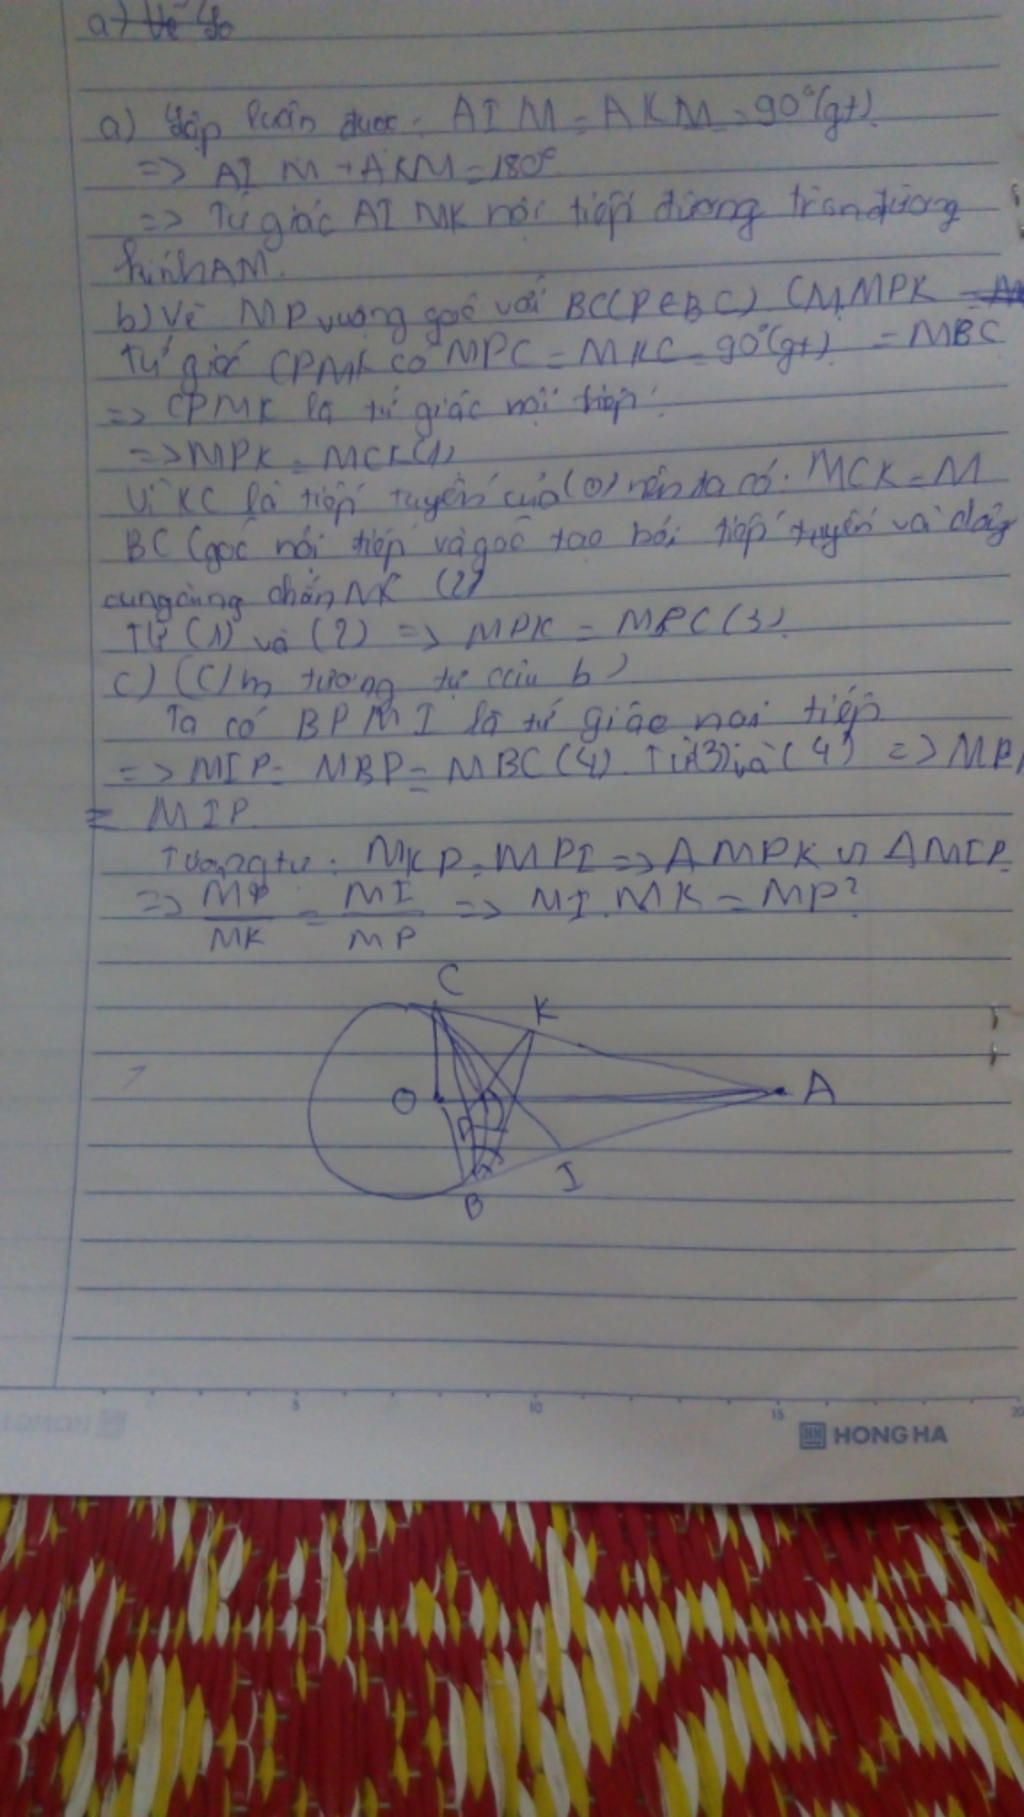 a) Vẽ
a) lập luận được: AIM = AKM = 90°(gt)
=> AI M + AKM = 180°
=> Tứ giác AI MK nội tiếp đường tròn đường
kính AM.
b) Vẽ MP vuông góc với BC(P∈BC) CM, MPK
= MBC
Tứ giác CPMK có MPC = MKC = 90°(gt)
=> CPMK là tứ giác nội tiếp.
=> MPK = MCK(1)
Vì KC là tiếp tuyến của (O) nên ta có: MCK = M
BC (góc nội tiếp và góc tạo bởi tiếp tuyến và dây
cung cùng chắn (2)
Từ (1) và (2) => MPK = MBC (3)
c) (C/m tương tự câu b)
Ta có BPMI là tứ giác nội tiếp
=> MIP = MBP = MBC (4). Từ(3) và (4) => MPK
= MIP.
Tương tự: MKP = MPI => ΔMPK ∽ ΔMIP
=> MP/MK = MI/MP => MI.MK = MP²
C
K
O
A
P
I
B
5 10 15 20
HONG HA